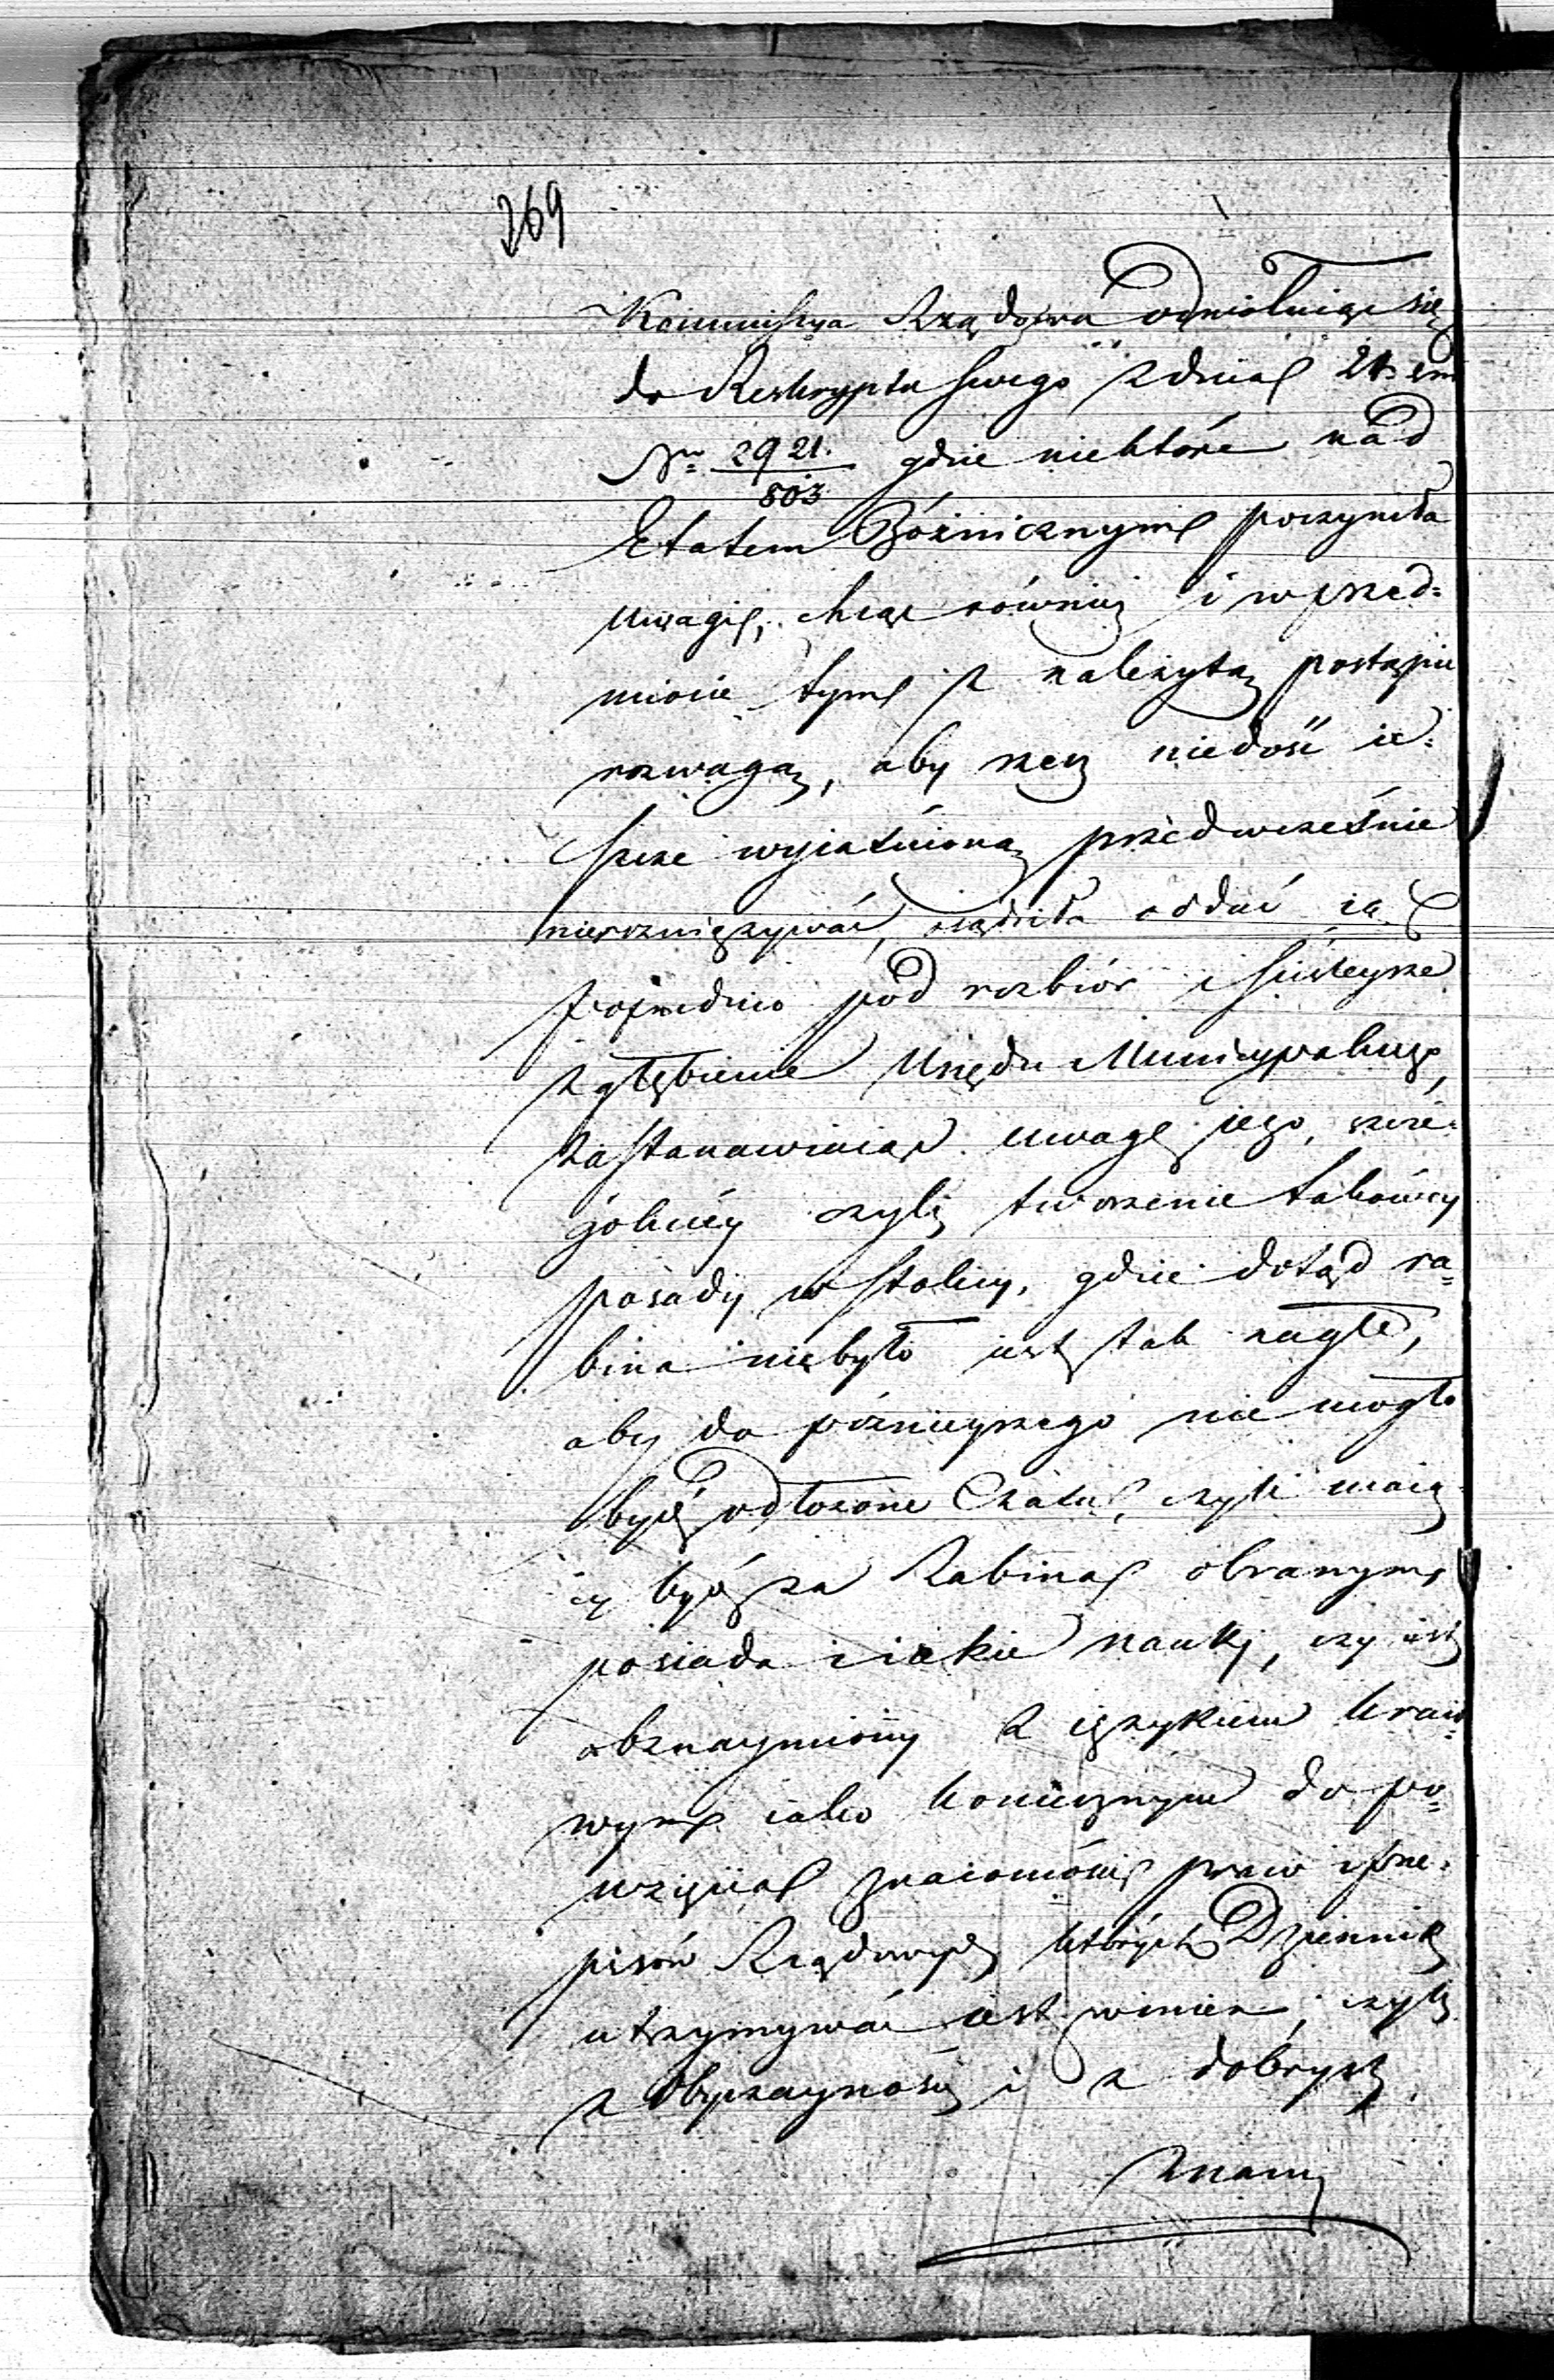 269
Kommissya Rządowa odwołuiąc się
do Reskryptu swego z dnia 21. em
Nro 2921./803 gdzie niektóre nad
Etatem Bóżnicznym poczyniła
uwagi, chcąc równie i w przed=
miocie tym z należytą postąpić
rozwagą, aby rzecz niedość ie=
szcze wyiaśnioną przedwcześnie
nierozwiązywać, osądziła oddać ią
poprzednio pod rozbiór i ściśleysze
zgłębienie Urzędu Municypalnego,
zastanawiaiąc uwagę iego, szcze=
gólniey czyli tworzenie takowey
posady w stolicy, gdzie dotąd ra=
bina niebyło iest tak nagłe,
aby do późnieyszego nie mogło
być odłożone Czasu, czyli maią=
cy być za Rabina obranym,
posiada iakie nauki, czy iest
obznaymiony z ięzykiem kraio=
wym iako koniecznym do po=
wzięcia znaiomości praw i prze=
pisów Rządowych których Dziennik
utrzymywać iest winien, czyli
z obyczayności i z dobrych
znany